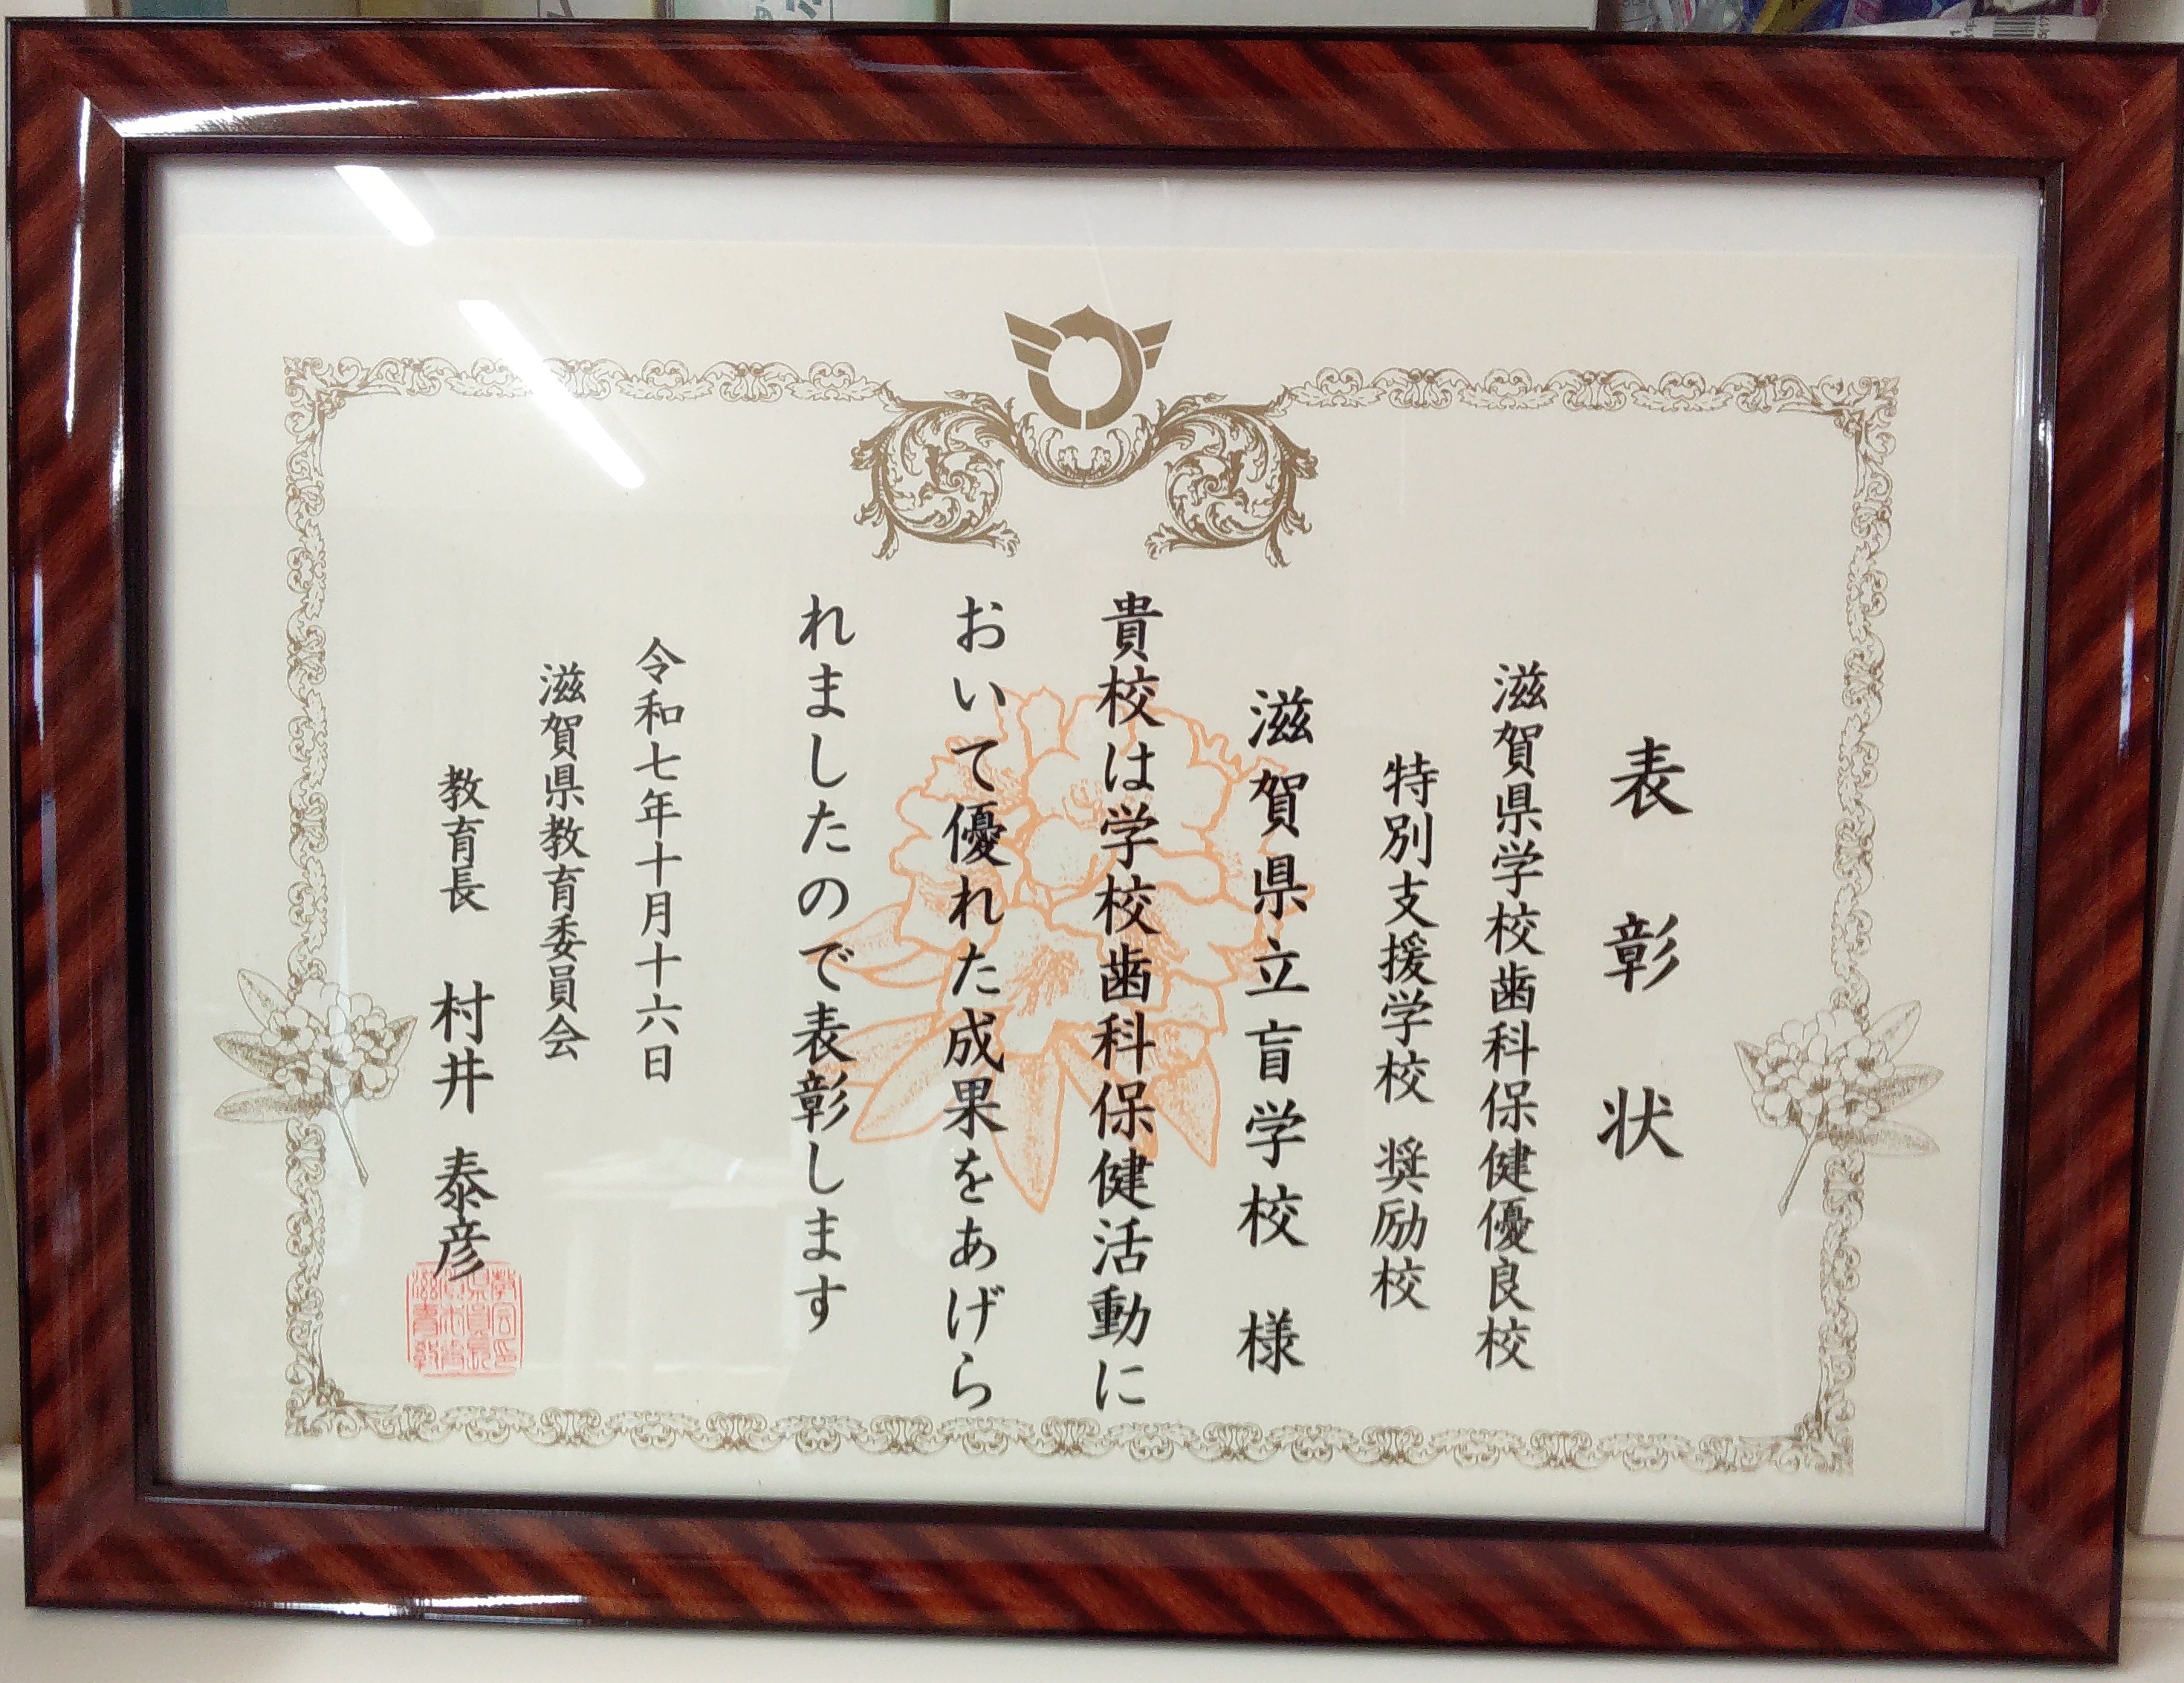 表彰状
滋賀県学校歯科保健優良校
特別支援学校 奨励校
滋賀県立盲学校 様
貴校は学校歯科保健活動に
おいて優れた成果をあげら
れましたので表彰します
令和七年十月十六日
滋賀県教育委員会
教育長 村井 泰彦